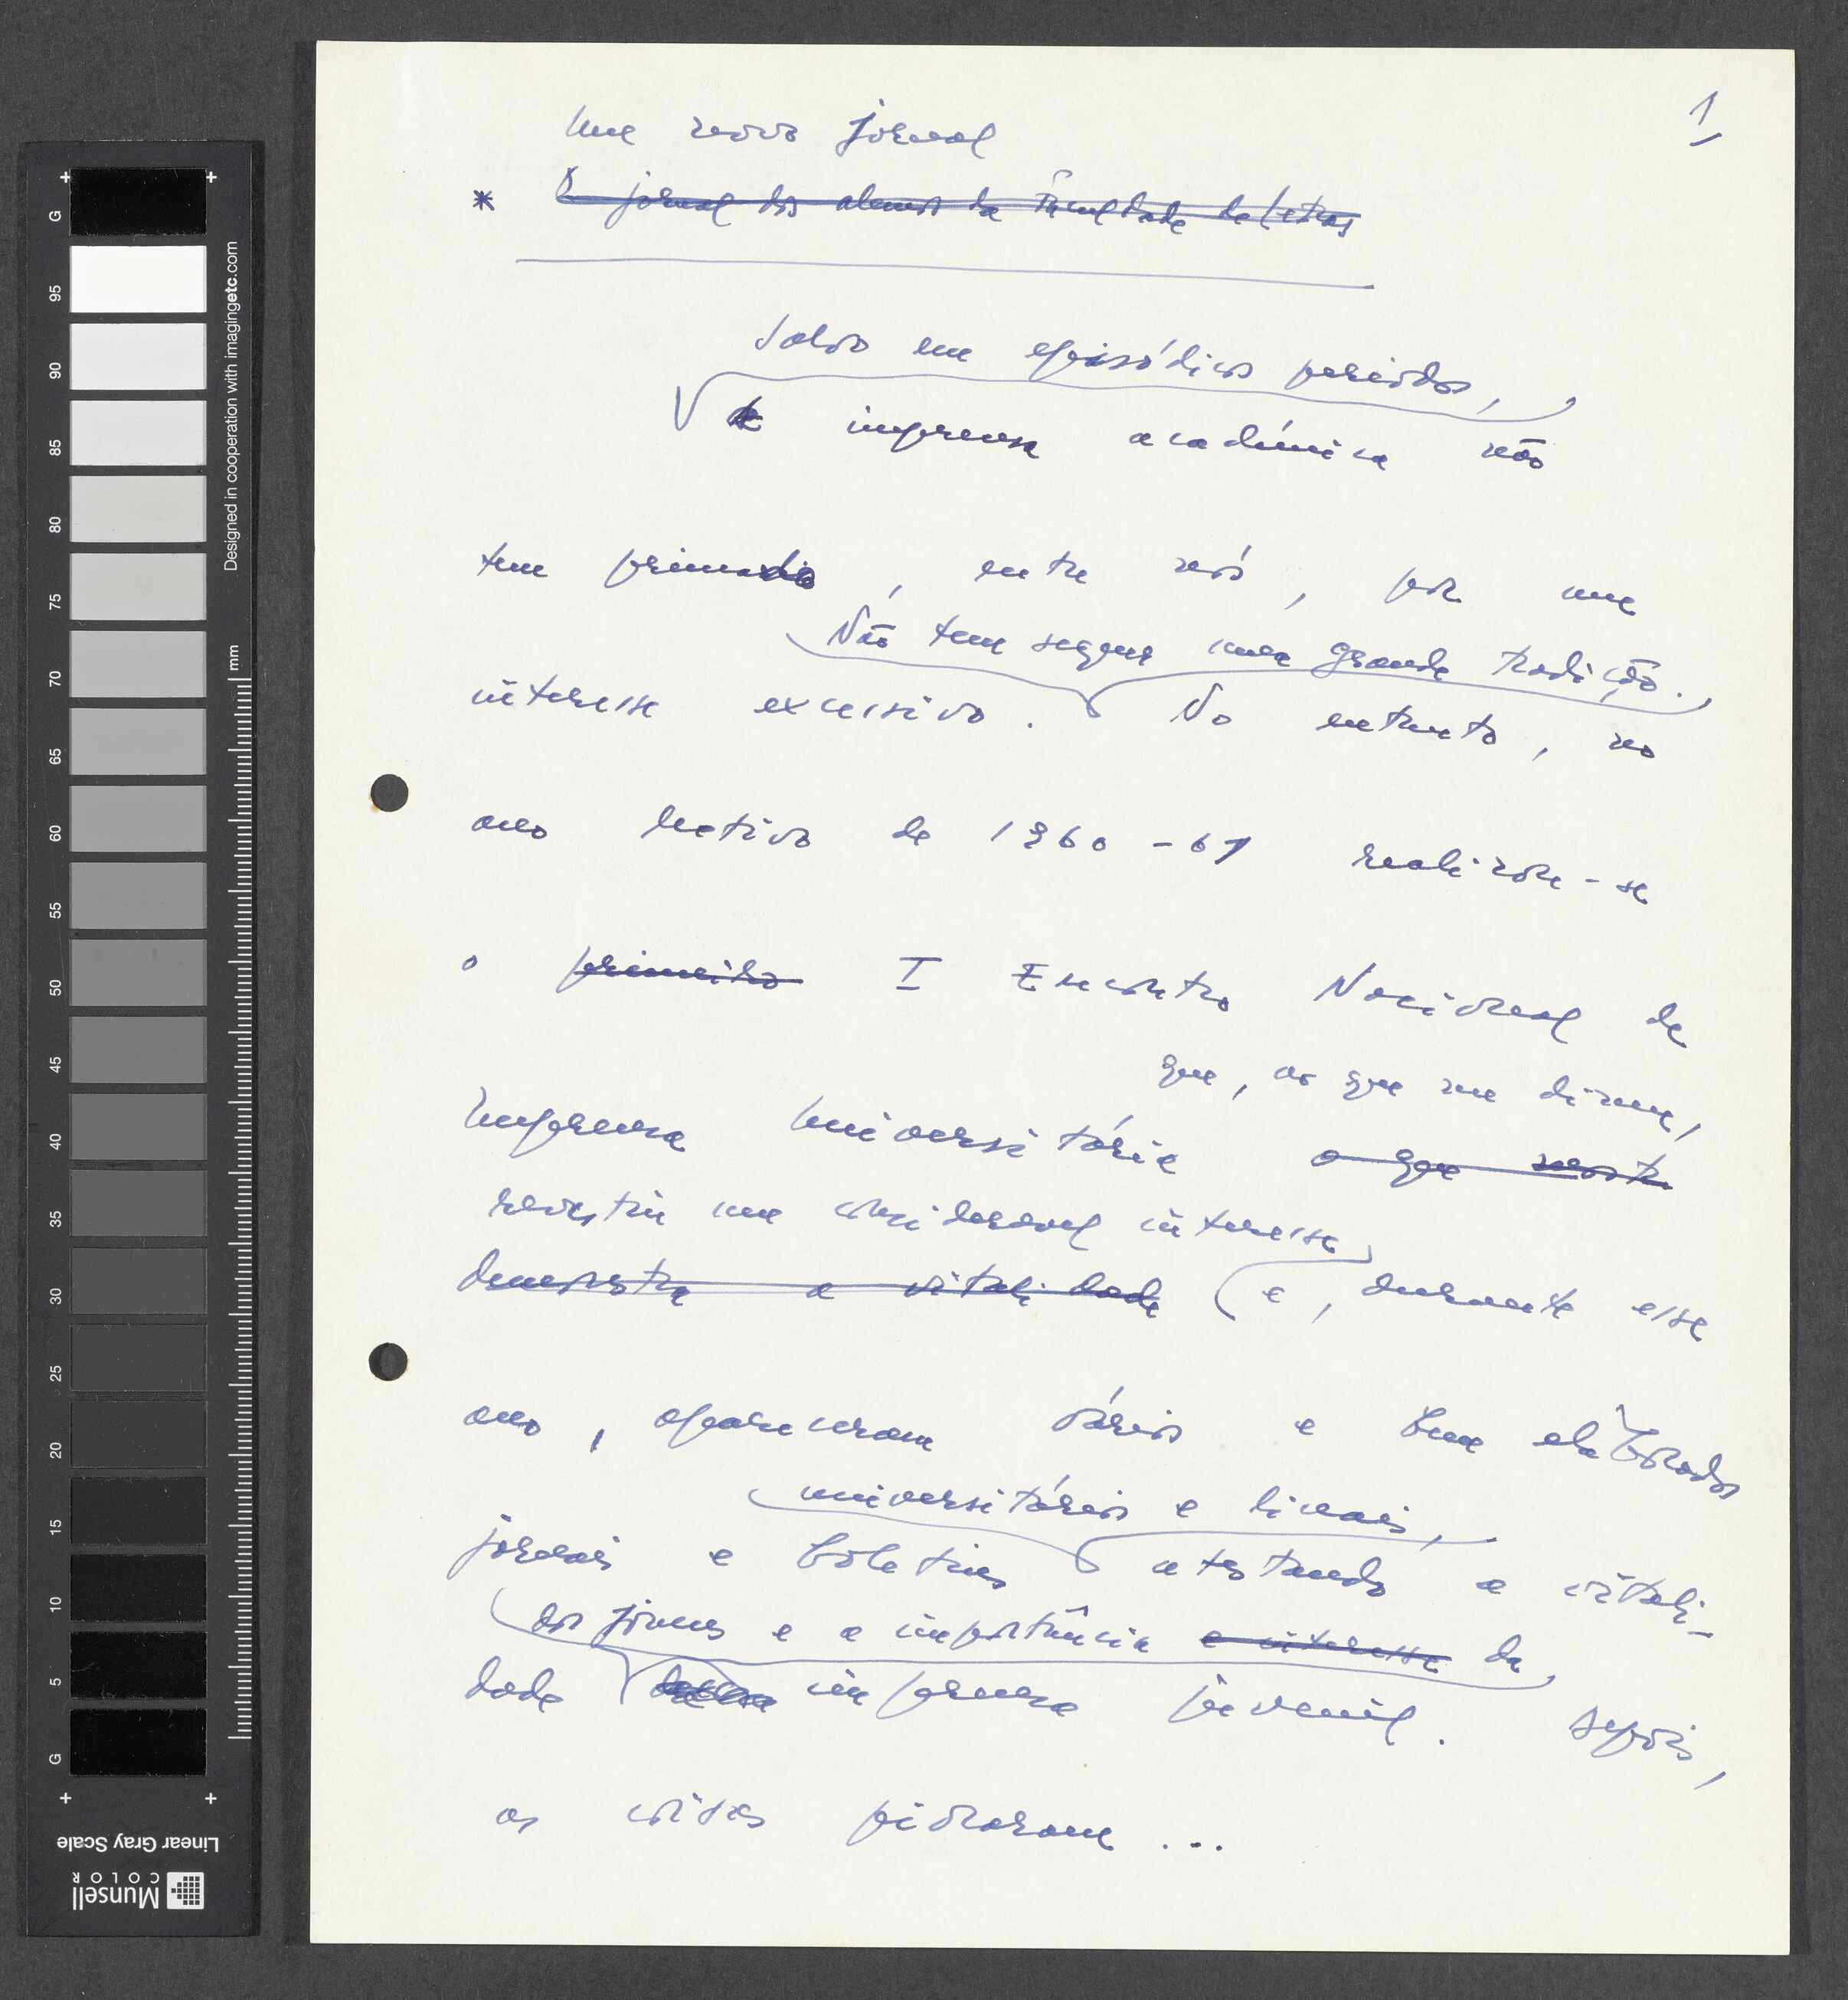 1
Um novo jornal
* O jornal dos alunos da Faculdade de Letras
Salvo em episódicos períodos,
a imprensa académica não
tem primado, entre nós, por um
Não tem sequer uma grande tradição.
interesse excessivo. No entanto, no
ano lectivo de 1960-61 realizou-se
o primeiro I Encontro Nacional de
que, ao que me dizem,
Imprensa Universitária o que
revestiu um considerável interesse
demonstra a vitalidade e, durante esse
ano, apareceram vários e bem elaborados
universitários e liceais,
jornais e boletins atestando a vitali-
dos jovens e a importância e interesse da
dade imprensa juvenil. Depois,
as coisas pioraram...
G 95 90 85 80 75 70 65 60 55 50 45 40 35 30 25 20 15 10 5 G
mm
Designed in cooperation with imagingetc.com
Linear Gray Scale
Munsell
COLOR